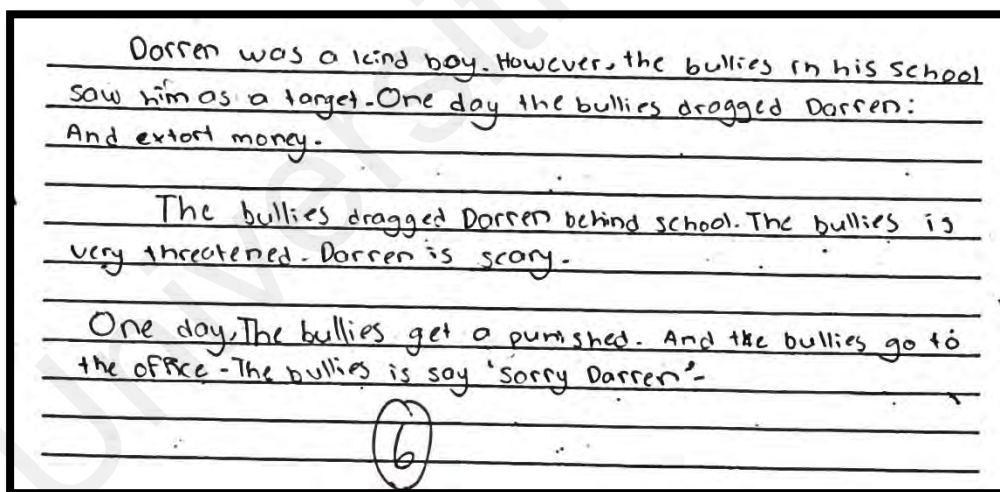 Darren was a kind boy. However, the bullies in his school
saw him as a target. One day the bullies dragged Darren:
And extort money.
The bullies dragged Darren behind school. The bullies is
very threatened. Darren is scary.
One day, The bullies get a punished. And the bullies go to
the office. The bullies is say 'Sorry Darren'.
6